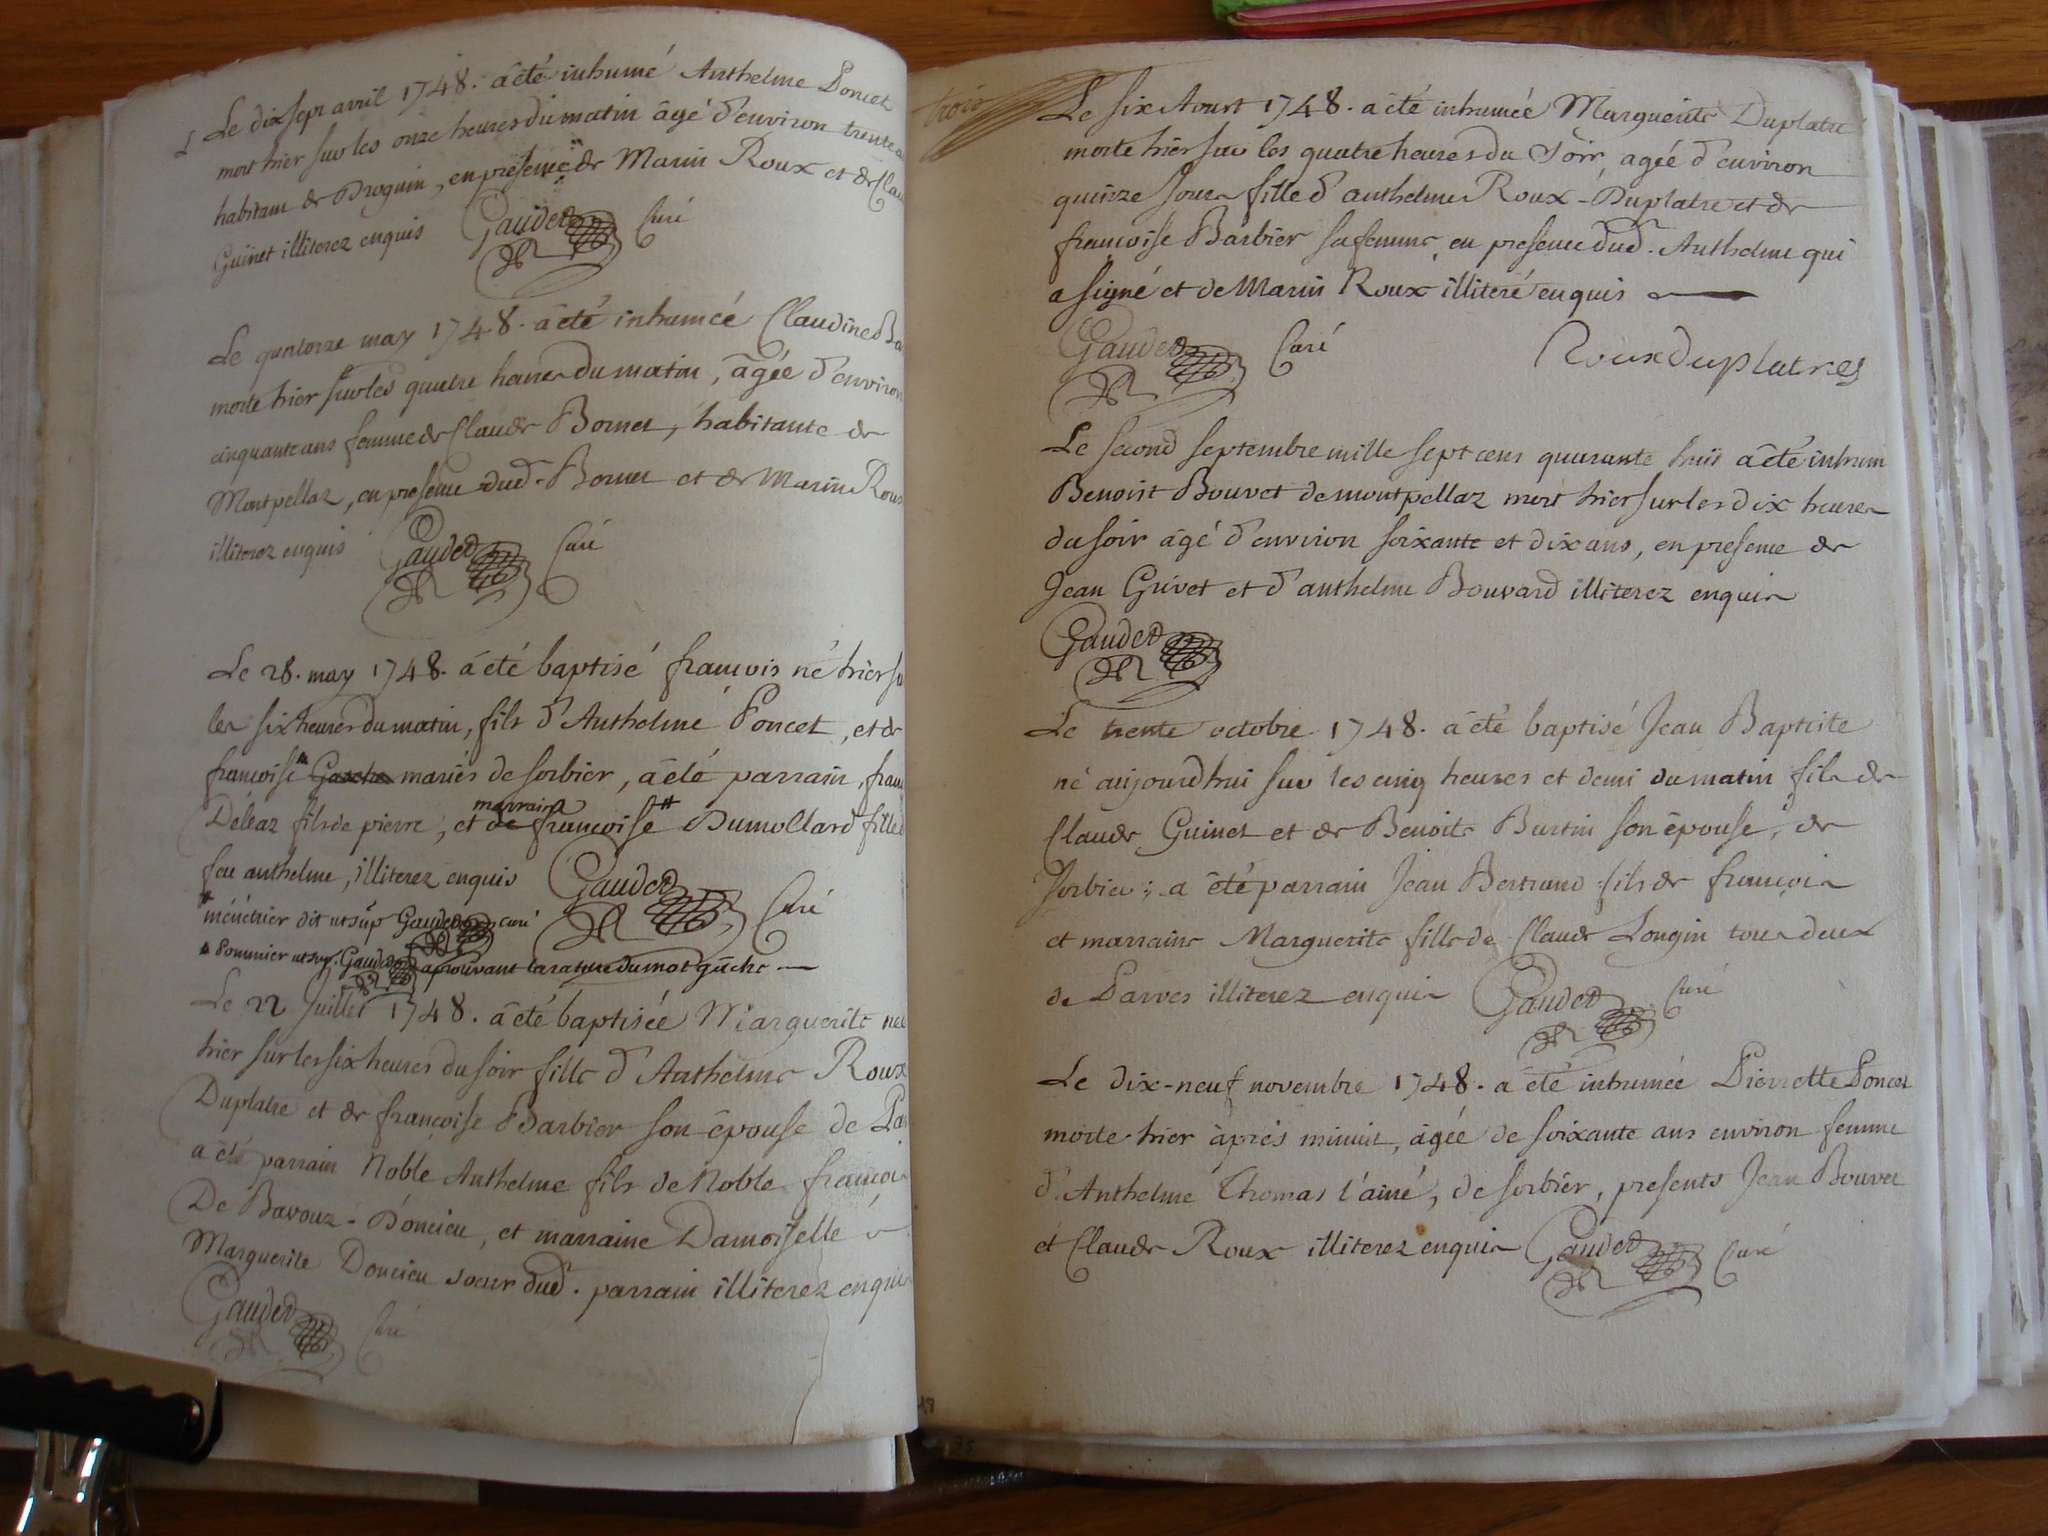 Le dix sept avril 1748. a été inhumé Anthelme Poncet
mort hier sur les onze heures du matin âgé d'environ trente a
habitant de Proguin, en presence de Marin Roux et de Clau
Guinet illiterez enquis Gaudet Curé
Le quatorze may 1748. a été inhumée Claudine Bo
morte hier sur les quatre heures du matin, âgée d'environ
cinquante ans femme de Claude Bornet, habitante de
Montpellaz, en presence dud. Bornet et de Marin Roux
illiterez enquis Gaudet Curé
Le 28. may 1748. a été baptisé françois né hier su
les six heures du matin, fils d'Anthelme Poncet, et de
françoise Gache mariés de sorbier, a été parrain, fran
Déléaz fils de pierre, et de marraine françoise Dumollard fille d
feu anthelme, illiterez enquis Gaudet Curé
ménétrier dit ut sup Gaudet curé
Pommier ut sup. Gaudet aprouvant la rature du mot gâche
Le 22 Juillet 1748. a été baptisée Marguerite née
hier sur les six heures du soir fille d'Anthelme Roux
Duplatre et de françoise Barbier son épouse de Pa
a été parrain Noble Anthelme fils de Noble françoi
De Bavouz-Dôncieu, et marraine Damoiselle
Marguerite Doncieu soeur dud. parrain illiterez enquis
Gaudet Curé
trois
Le six Aoust 1748. a été inhumée Marguerite Duplatre
morte hier sur les quatre heures du Soir, agée d'environ
quinze Jours fille d'anthelme Roux-Duplatre et de
françoise Barbier sa femme, en presence dud. Anthelme qui
a signé et de Marin Roux illiteré enquis
Gaudet Curé Rouxduplatres
Le second septembre mille sept cens quarante huit a été inhum
Benoist Bouvet de montpellaz mort hier sur les dix heures
du soir âgé d'environ soixante et dix ans, en presence de
Jean Grivet et d'anthelme Bouvard illiterez enquis
Gaudet
Le trente octobre 1748. a été baptisé Jean Baptiste
né aujourdhui sur les cinq heures et demi du matin fils de
Claude Guinet et de Benoite Burtin son épouse, de
Sorbier; a été parrain Jean Bertrand fils de françois
et marraine Marguerite fille de Claude Longin tous deux
de Parves illiterez enquis Gaudet Curé
Le dix-neuf novembre 1748. a été inhumée Pierrette Poncet
morte hier après minuit, âgée de soixante ans environ femme
d'Anthelme Thomas l'ainé, de sorbier, presents Jean Bouvet
et Claude Roux illiterez enquis Gaudet Curé